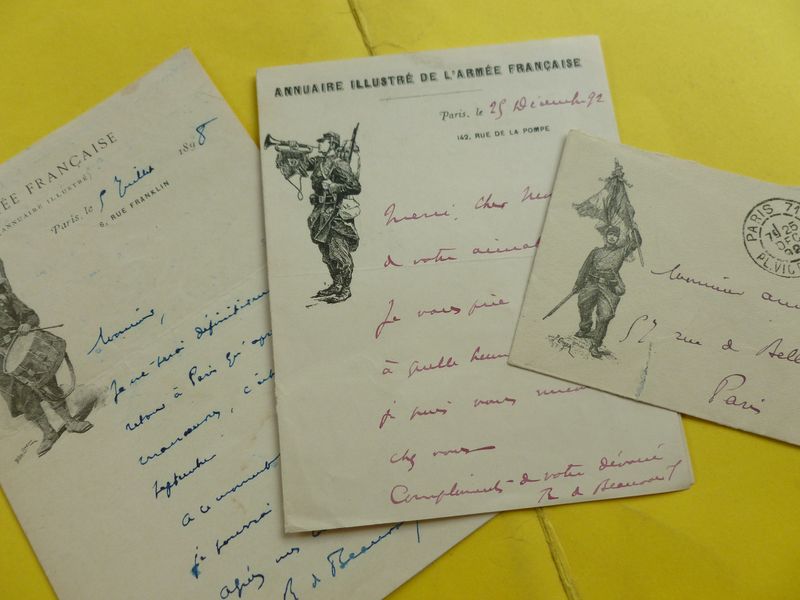 ÉE FRANÇAISE
(ANNUAIRE ILLUSTRÉ)
Paris, le 5 juillet 1898
6, RUE FRANKLIN
Monsieur,
Je ne serai définitivem
retour à Paris qu'apr
manœuvres, c'est
septembre.
A ce moment
je pourrai
après
R de Beauvoir
ANNUAIRE ILLUSTRÉ DE L'ARMÉE FRANÇAISE
Paris, le 25 Décembre 92
142, RUE DE LA POMPE
Merci, Cher
de votre aimab
Je vous prie
à quelle heure
je puis vous
chez vous
Compliments de votre dévoué
R de Beauvoir
PARIS 71
26
DEC
PL. VICT
Monsieur
57 rue de Belle
Paris